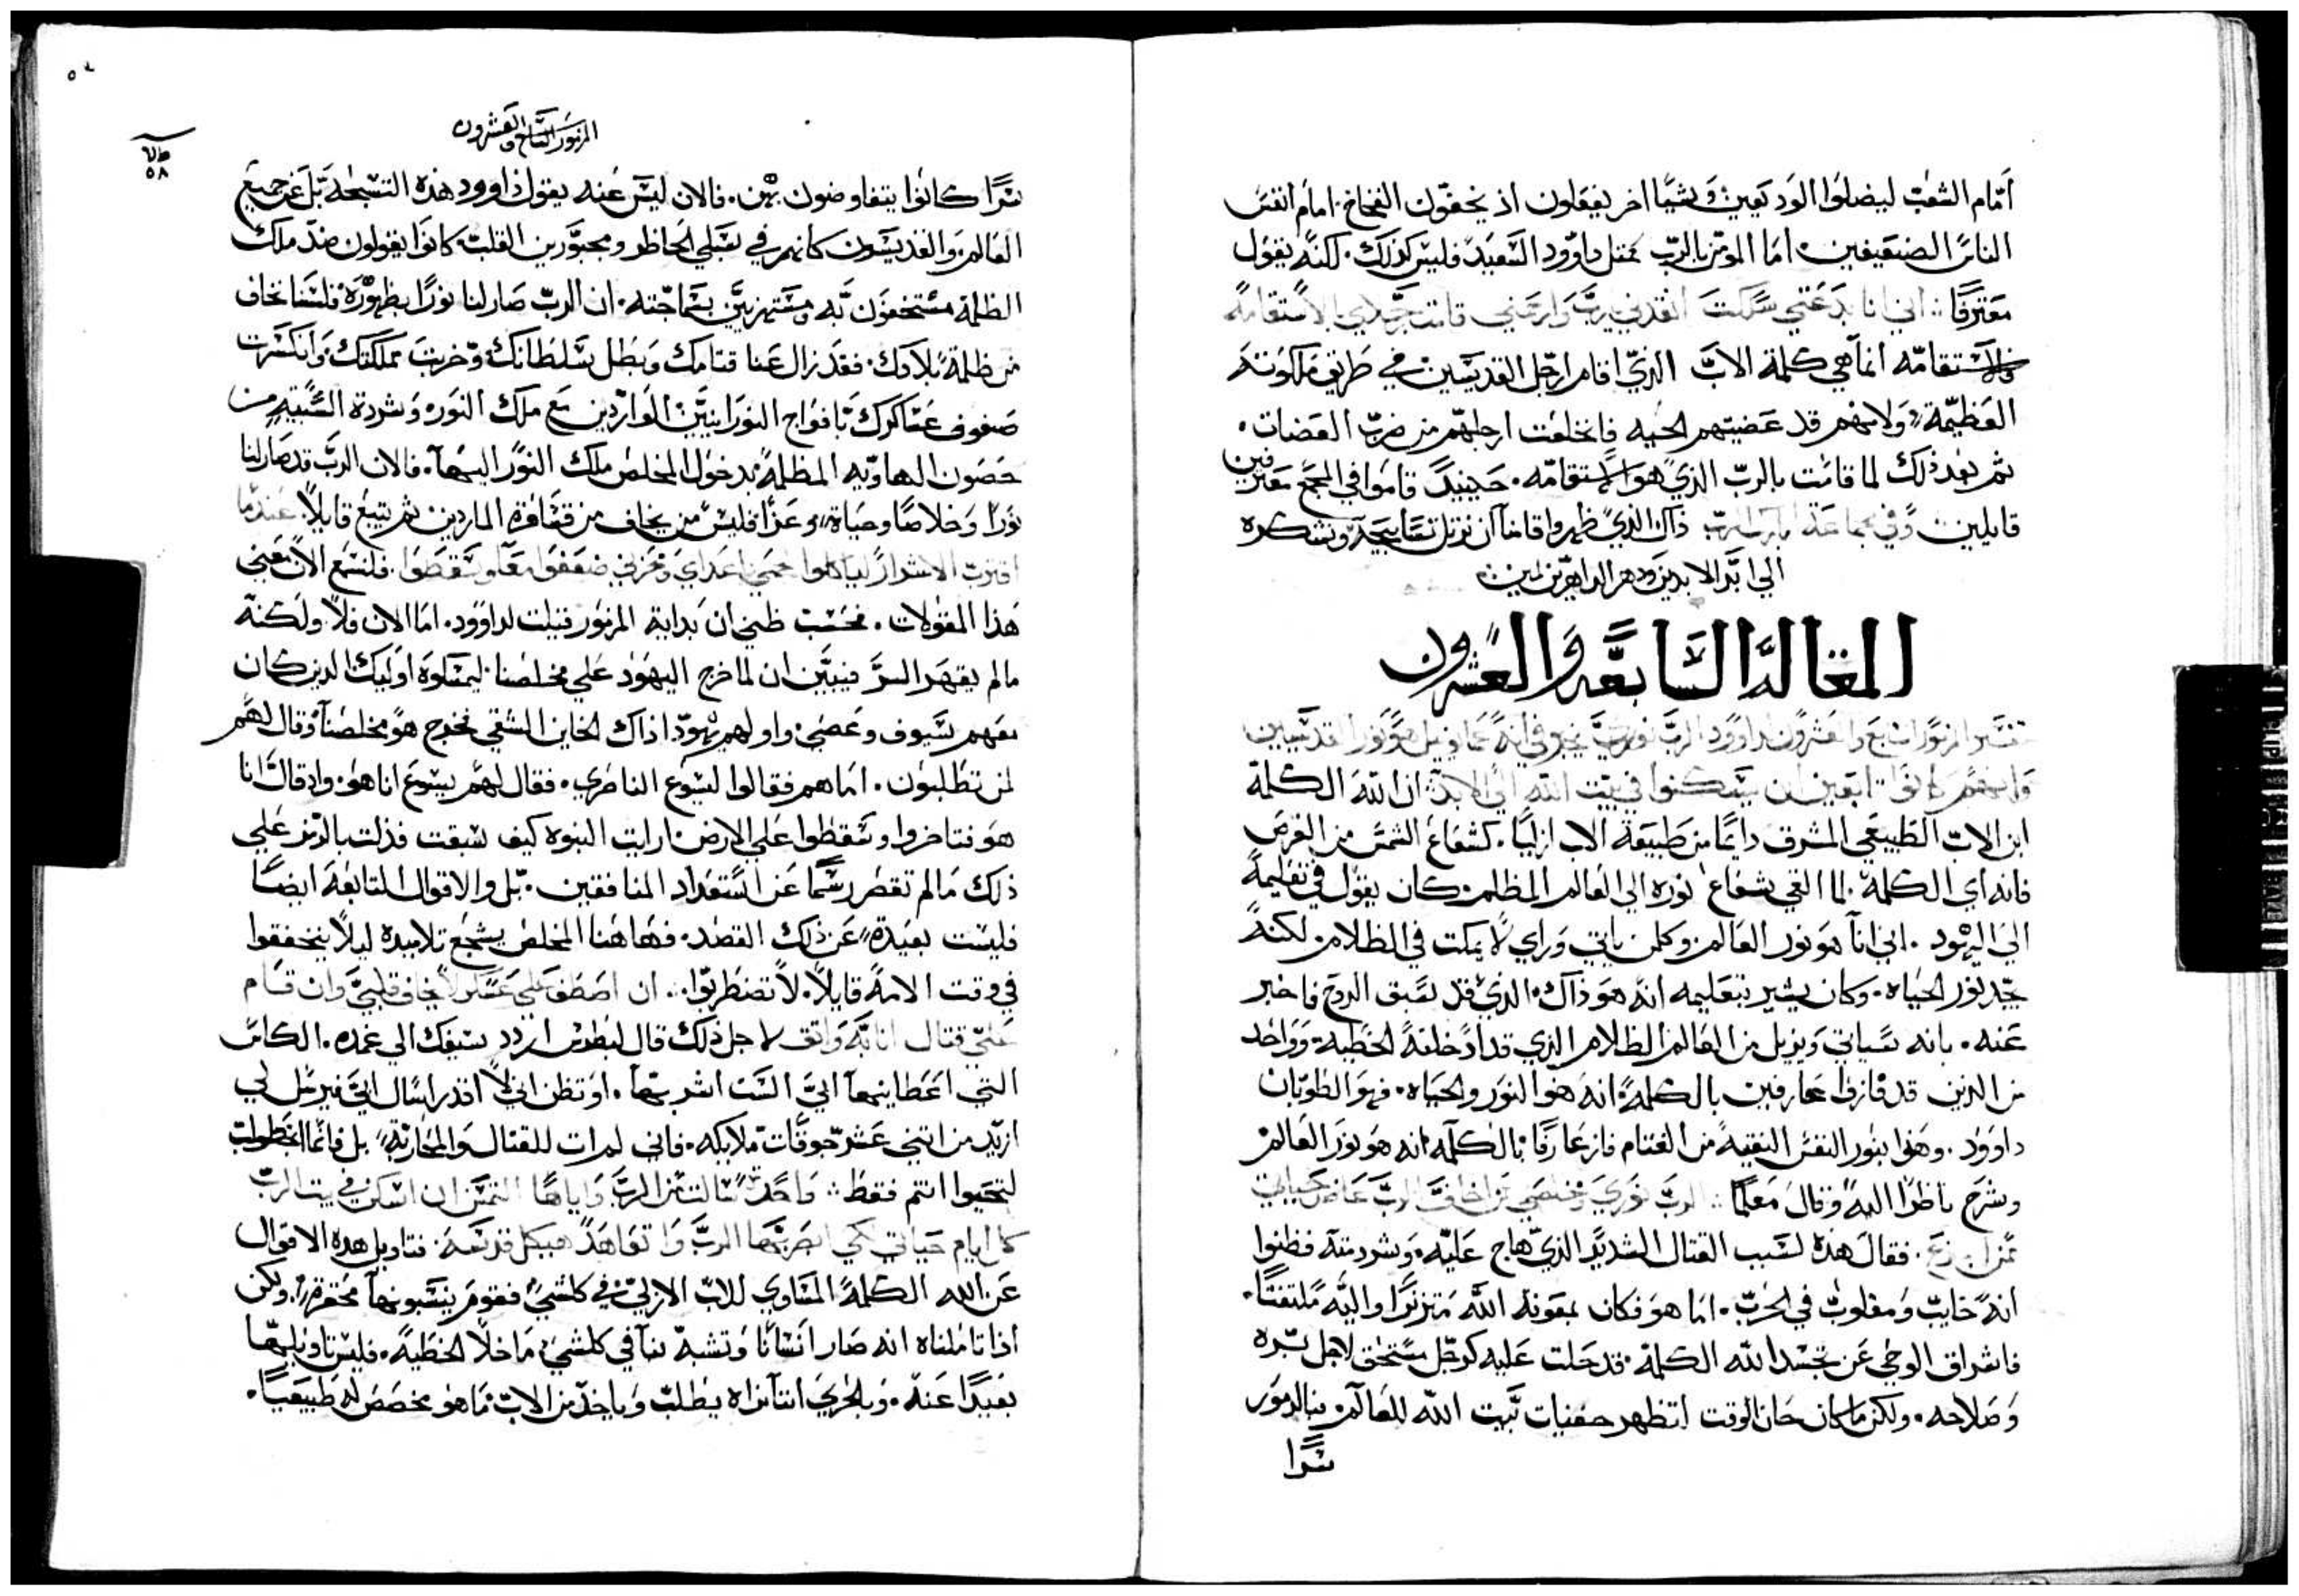 أمام الشعب ليضلوا الودعين وشيا اخر يفعلون اذ يخفون الفخاخ. امام انفس
الناس الضعيفين. اما المومن بالرب بمثل داوود السعيد فليس كذلك. لكنه يقول
معترفا: اني انا بدعتي سلكت انقذني يارب وارحمني قامت رجلاي بالاستقامه
والاستقامه انما هي كلمة الاب الذي اقام ارجل القديسين في طريق ملكوته
العظيمة ولانهم قد عضيتهم الحيه فانخلعت ارجلهم من ضرب العضات.
ثم بعد ذلك لما قامت بالرب الذي هو الاستقامه. حينيد قاموا في المجمع معترفين
قايلين وفي الجماعة ابارك الرب ذاك الذي ظهر واقامنا ان نرتل تسابيحه ونشكره
الي ابد الابدين ودهر الداهرين امين
المقالة السابعة والعشرون
تفسير المزمور السابع والعشرون لداوود الرب نوري يخبر في انه عمانويل هو نور القديسين
وانهم كانوا تابعين ان يسكنوا في بيت الله الي الابد: ان الله الكلمة
ابن الاب الطبيعي المشرق دايما من طبيعة الاب ازليا. كشعاع الشمس من القرص
فانه اي الكلمة لما القي شعاع نوره الي العالم المظلم. كان يقول في تعليمه
الي اليهود. اني انا هو نور العالم. وكلمن ياتي وراي لا يمكت في الظلام. لكنه
يجد نور الحياه. وكان يشير بتعليمه انه هو ذاك الذي قد سبق الروح فاخبر
عنه. بانه سياتي ويزيل من العالم الظلام الذي قد ادخلته الخطية. وواحد
من الذين قد فازوا عارفين بالكلمة انه هو النور والحياه. فهو الطوبان
داوود. وهذا بنور النفس النقيه من الغتام فاز عارفا بالكلمه انه هو نور العالم
وشرح ناظرا اليه وقال معلما: الرب نوري ومخلصي من اخاف الرب عاضد حياتي
ممن اجزع. فقال هذه لسبب القتال الشديد الذي هاج عليه. وشردمته فظنوا
انه خايب ومغلوب في الحرب. اما هو فكان بمعونة الله متزنرا واليه ملتفتا.
فاشراق الوحي عن تجسد الله الكلمة. قد حلت عليه كرجل مستحق لاجل بره
وصلاحه. ولكن ما كان حان الوقت لتظهر خفيات بيت الله للعالم. بنالرموز
سرا
المزمور السابع والعشرون
سرا كانوا يتفاوضون بهن. فالان ليس عنه يقول داوود هذه التسبحة بل عن جميع
العالم. والقديسون كانهم في سبلي الحاظر ومجبورين القلب كانوا يقولون ضد ملك
الظلمة مستخفون به ومستهزيين بسماجته. ان الرب صار لنا نورا بظهوره فلسنا نخاف
من ظلمة بلادك. فقد زال عنا قتامك وبطل سلطانك وخربت مملكتك. وانكسرت
صفوف عساكرك بافواج النورانيين الواردين مع ملك النور. وشردة السبيه من
حصون الهاويه المظلمة بدخول المخلص ملك النور اليها. فالان الرب قد صار لنا
نورا وخلاصا وحياة وعزا فليس من يخاف من قتافرة الماردين ثم يتبع قايلا. عندما
اقترب الاشرار لياكلوا لحمي اعداي ومحزني ضعفوا معا وسقطوا. فلنسمع الان معني
هذا المقولات. فحسب ظني ان بداية المزمور قيلت لداوود. اما الان فلا ولكنه
مالم يقهر السر فيتبين ان لما خرج اليهود علي مخلصنا. ليمسكوه اوليك الدين كان
معهم سيوف وعصي واولهم يهودا ذاك الخاين الشقي فخرج هو مخلصنا وقال لهم
لمن تطلبون. اما هم فقالوا ليسوع الناصري. فقال لهم يسوع انا هو. واذ قال انا
هو فتاخروا وسقطوا علي الارض. ارايت النبوه كيف سبقت فدلت بالرمز علي
ذلك مالم تقصر رسما عن استعداد المنافقين. بل والاقوال التابعة ايضا
فليست بعيدة عن ذلك القصد. فهاهنا المخلص يشجع تلاميده ليلا ينخفقوا
في وقت الامه قايلا. لا تضطربوا. ان اصطف علي عسكر لا يخاف قلبي وان قام
علي قتال انا به واثق لاجل ذلك قال لبطرس اردد سيفك الي غمده. الكاس
التي اعطانيها ابي الست اشربها. او تظن اني لا اقدر اسال ابي فيرسل لي
ازيد من اثني عشر جوقات ملايكه. فاني لم ات للقتال والمحاربة بل فانما اتخطوات
لتحيوا انتم فقط: واحدة سالت من الرب واياها التمس ان اسكن في بيت الرب
كل ايام حياتي لكي ابصر بها الرب واتعاهد هيكل قدسه. فتاويل هده الاقوال
عن الله الكلمة المساوي للاب الازلي في كلشي فقوم ينسبونها محتقرة. ولكن
اذا تاملناه انه صار انسانا وتشبه بنا في كلشي ما خلا الخطية. فليس تاويلها
بعيدا عنه. وبالحري اننا نراه يطلب وياخذ من الاب ما هو مخصص له طبيعيا.